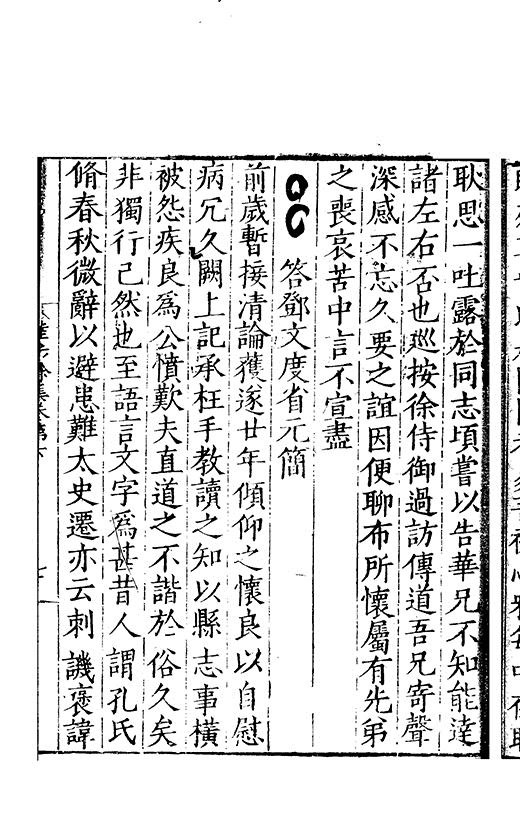 耿思一吐露於同志頃嘗以告華兄不知能達
諸左右否也巡按徐侍御過訪傳道吾兄寄聲
深感不忘久要之誼因便聊布所懷屬有先弟
之喪哀苦中言不宣盡
答鄧文度省元簡
前歲暫接清論獲遂廿年傾仰之懷良以自慰
病冗久闕上記承枉手教讀之知以縣志事橫
被怨疾良爲公憤歎夫直道之不諧於俗久矣
非獨行己然也至語言文字爲甚昔人謂孔氏
脩春秋微辭以避患難太史遷亦云刺譏褒諱